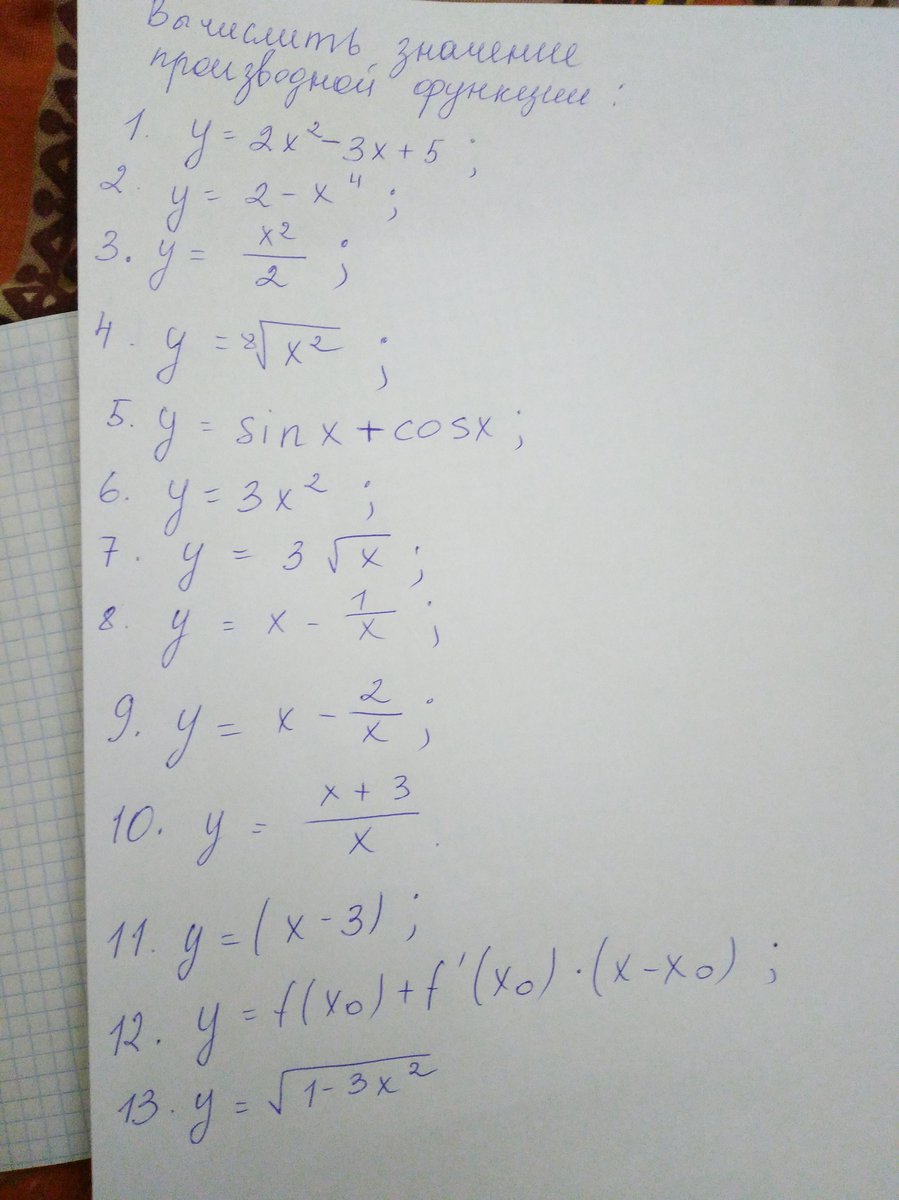 Вычислить значение
производной функции:
1. y = 2x² - 3x + 5 ;
2. y = 2 - x⁴ ;
3. y = x²/2 ;
4. y = ⁸√x² ;
5. y = sin x + cos x ;
6. y = 3x² ;
7. y = 3 √x ;
8. y = x - 1/x ;
9. y = x - 2/x ;
10. y = (x + 3)/x .
11. y = (x - 3) ;
12. y = f(x₀) + f'(x₀) · (x - x₀) ;
13. y = √(1 - 3x²)